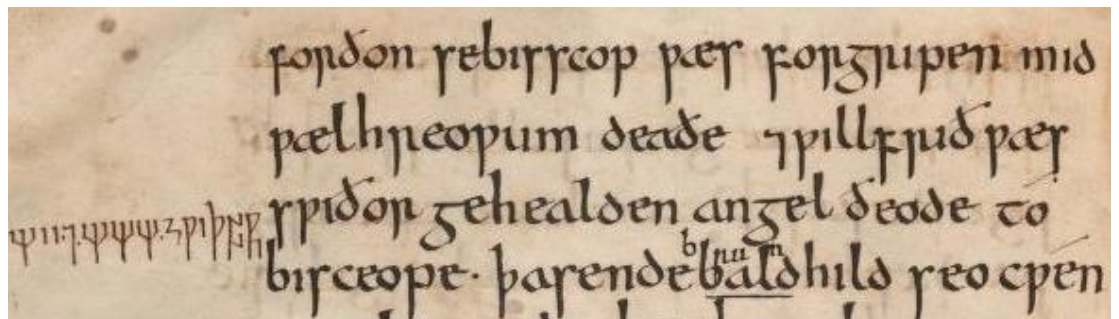 forðon se bisscop ƿæs forgripen mid
ƿælhreoƿum deaðe ⁊ ƿillfrið ƿæs
sƿiðor gehealden angel ðeode to
bisceope · þa sende baldhild seo cƿen